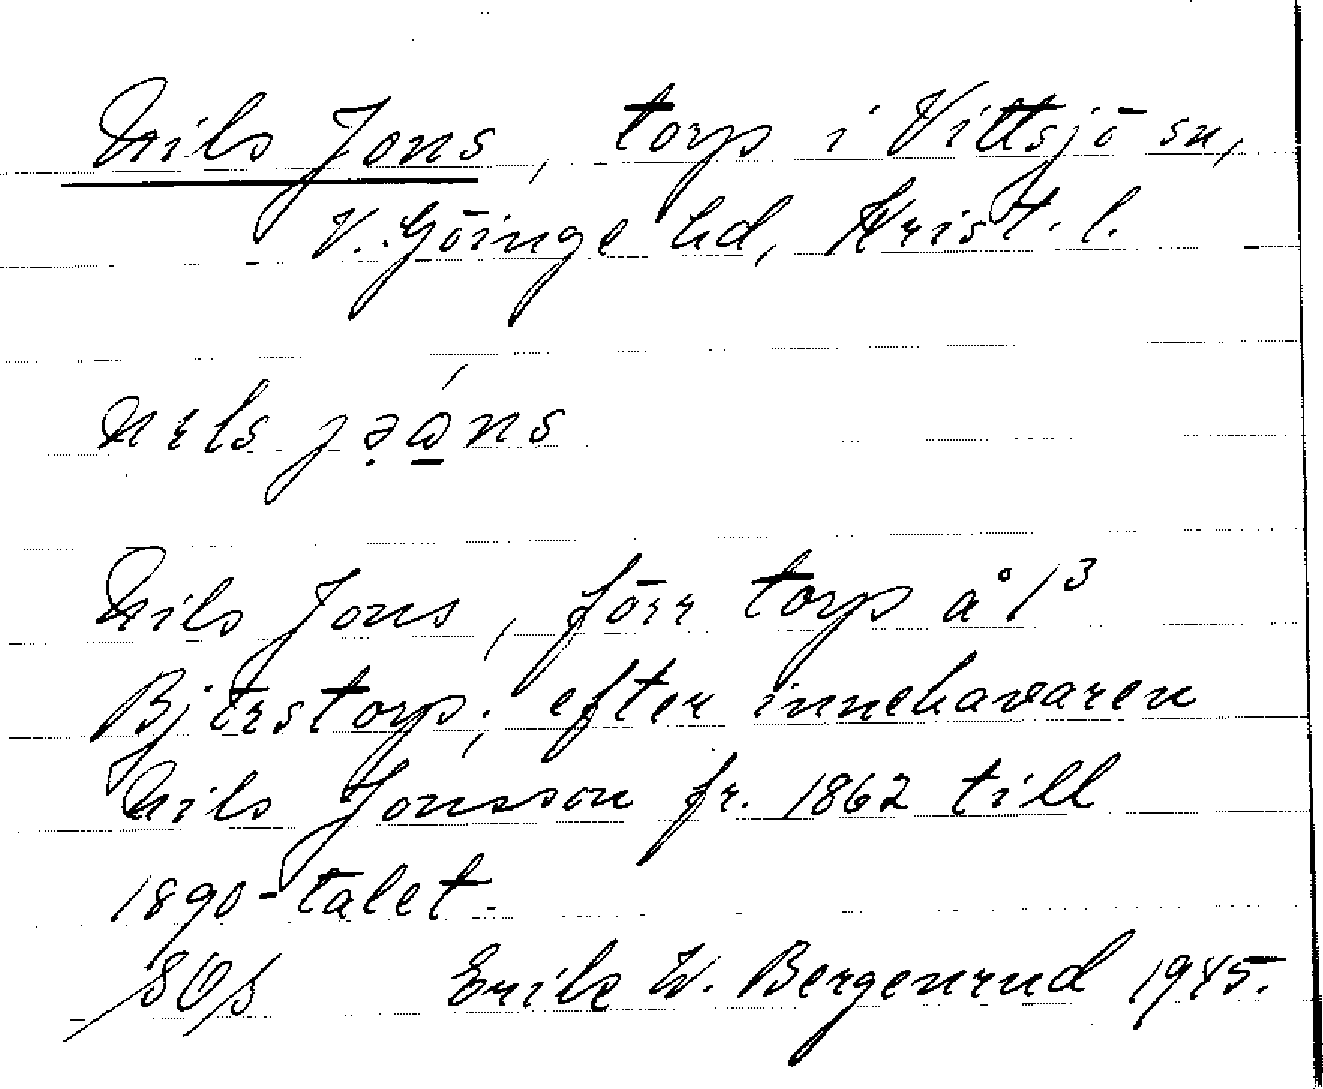 Nils Jons, torp i Vittsjö sn,
V. Göinge hd, Krist. l.
Nils Jons, förr torp å 1³
Björstorp; efter innehavaren
Nils Jonsson fr. 1862 till
1890-talet.
Erik W. Bergenrud 1945.